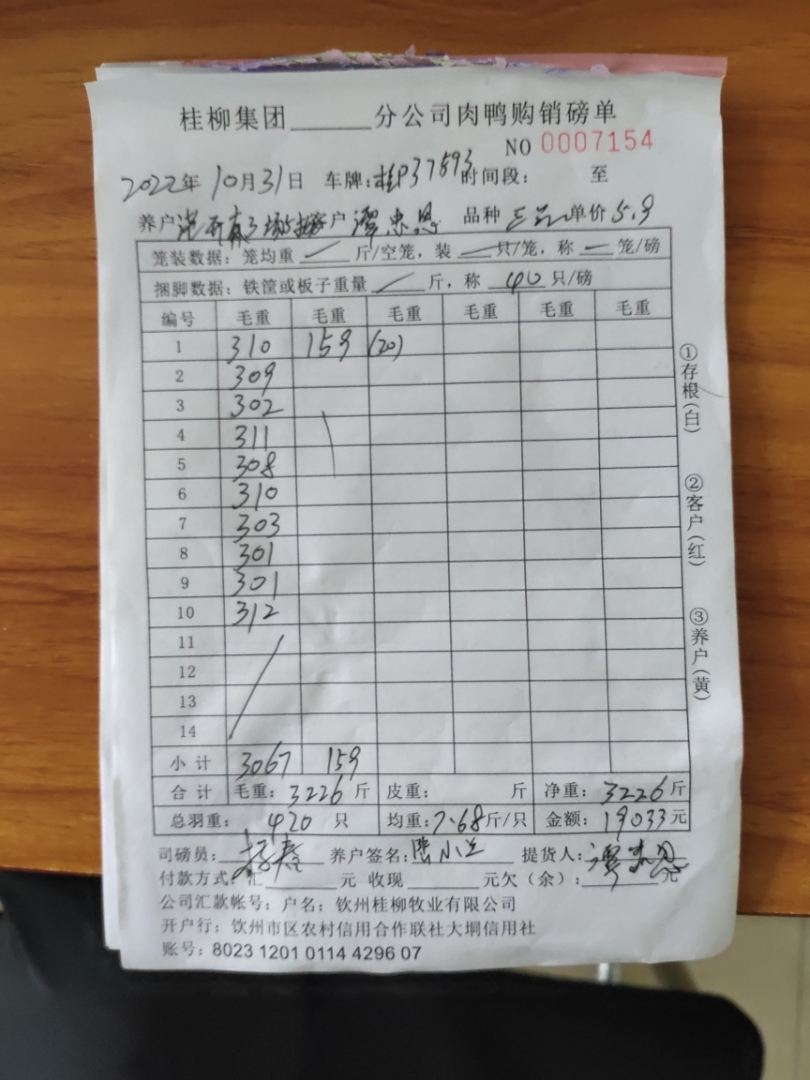 桂柳集团______分公司肉鸭购销磅单
NO 0007154
2022年10月31日 车牌:桂P37893 时间段: 至
养户 客户 谭忠恩 品种 三 单价5.9
笼装数据:笼均重 / 斤/空笼,装 — 只/笼,称 — 笼/磅
捆脚数据:铁筐或板子重量 / 斤,称 40 只/磅
编号 毛重 毛重 毛重 毛重 毛重 毛重
1 310 159 (20)
2 309
3 302
4 311
5 308
6 310
7 303
8 301
9 301
10 312
11
12
13
14
小计 3067 159
合计 毛重:3226斤 皮重: 斤 净重:3226斤
总羽重:420只 均重:7.68斤/只 金额:19033元
司磅员: 养户签名: 提货人:谭忠恩
付款方式:汇______元 收现______元欠(余):______元
公司汇款帐号:户名:钦州桂柳牧业有限公司
开户行:钦州市区农村信用合作联社大垌信用社
账号:8023 1201 0114 4296 07
①存根(白)
②客户(红)
③养户(黄)